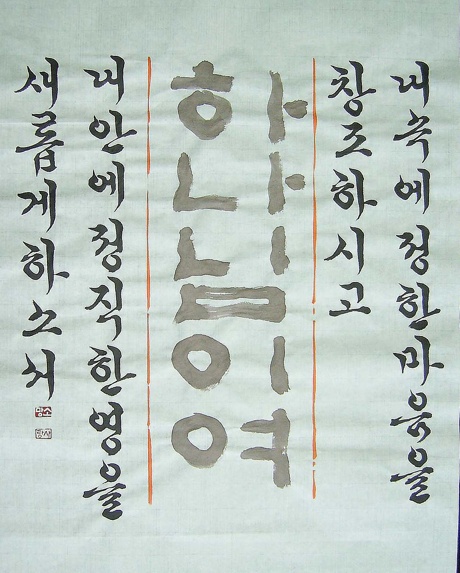 내속에정한마음을
창조하시고
하나님이여
내안에정직한영을
새롭게하소서